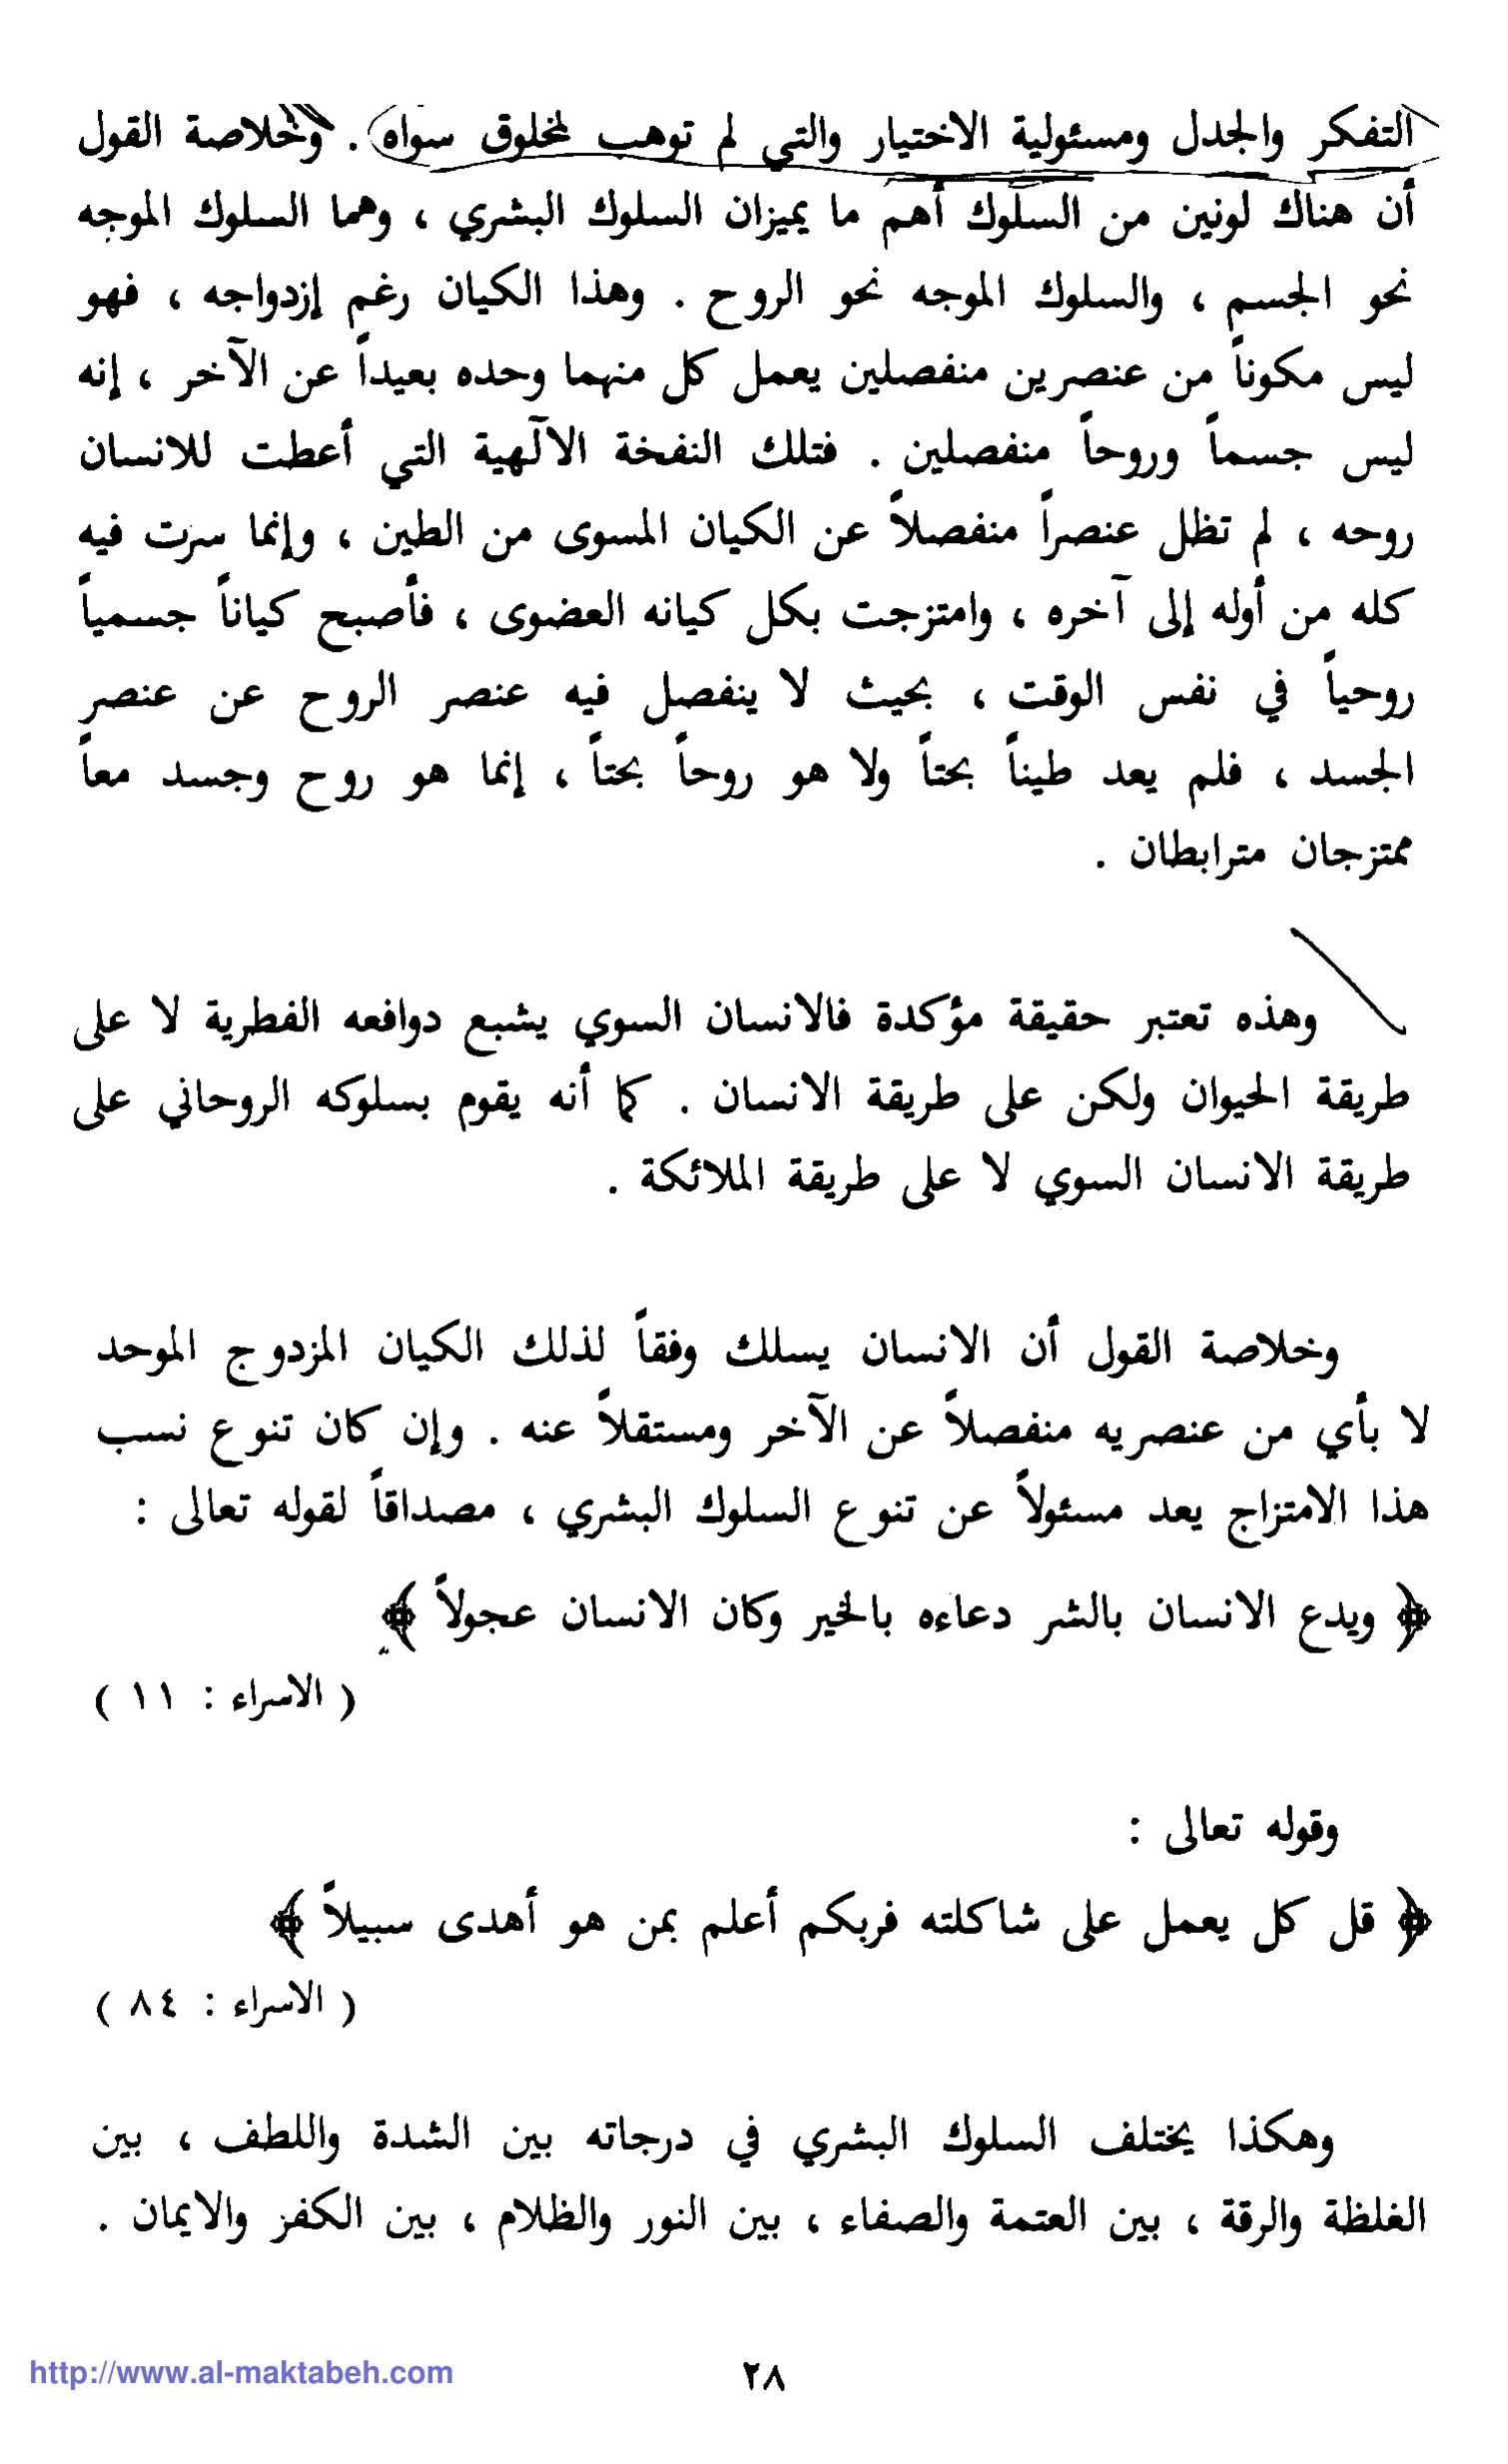 التفكر والجدل ومسئولية الاختيار والتي لم توهب لمخلوق سواه . وخلاصة القول
أن هناك لونين من السلوك أهم ما يميزان السلوك البشري ، وهما السلوك الموجه
نحو الجسم ، والسلوك الموجه نحو الروح . وهذا الكيان رغم إزدواجه ، فهو
ليس مكوناً من عنصرين منفصلين يعمل كل منهما وحده بعيداً عن الآخر ، إنه
ليس جسماً وروحاً منفصلين . فتلك النفخة الآلهية التي أعطت للانسان
روحه ، لم تظل عنصراً منفصلاً عن الكيان المسوى من الطين ، وإنما سرت فيه
كله من أوله إلى آخره ، وامتزجت بكل كيانه العضوى ، فأصبح كياناً جسمياً
روحياً في نفس الوقت ، بحيث لا ينفصل فيه عنصر الروح عن عنصر
الجسد ، فلم يعد طيناً بحتاً ولا هو روحاً بحتاً ، إنما هو روح وجسد معاً
ممتزجان مترابطان .
وهذه تعتبر حقيقة مؤكدة فالانسان السوي يشبع دوافعه الفطرية لا على
طريقة الحيوان ولكن على طريقة الانسان . كما أنه يقوم بسلوكه الروحاني على
طريقة الانسان السوي لا على طريقة الملائكة .
وخلاصة القول أن الانسان يسلك وفقاً لذلك الكيان المزدوج الموحد
لا بأي من عنصريه منفصلاً عن الآخر ومستقلاً عنه . وإن كان تنوع نسب
هذا الامتزاج يعد مسئولاً عن تنوع السلوك البشري ، مصداقاً لقوله تعالى :
﴿ ويدع الانسان بالشر دعاءه بالخير وكان الانسان عجولاً ﴾
( الاسراء : ١١ )
وقوله تعالى :
﴿ قل كل يعمل على شاكلته فربكم أعلم بمن هو أهدى سبيلاً ﴾
( الاسراء : ٨٤ )
وهكذا يختلف السلوك البشري في درجاته بين الشدة واللطف ، بين
الغلظة والرقة ، بين العتمة والصفاء ، بين النور والظلام ، بين الكفر والايمان .
٢٨
http://www.al-maktabeh.com